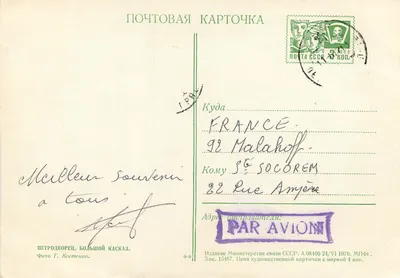 ПОЧТОВАЯ КАРТОЧКА
ПОЧТА СССР
Куда
FRANCE
92 Malakoff
Кому Sté SOCOREM
22 Rue Ampère
Meilleur souvenir
à tous
Адрес отправителя:
PAR AVION
ПЕТРОДВОРЕЦ. БОЛЬШОЙ КАСКАД.
Фото Г. Костенко.
Издание Министерства связи СССР.
Цена художественной карточки с маркой 4 коп.